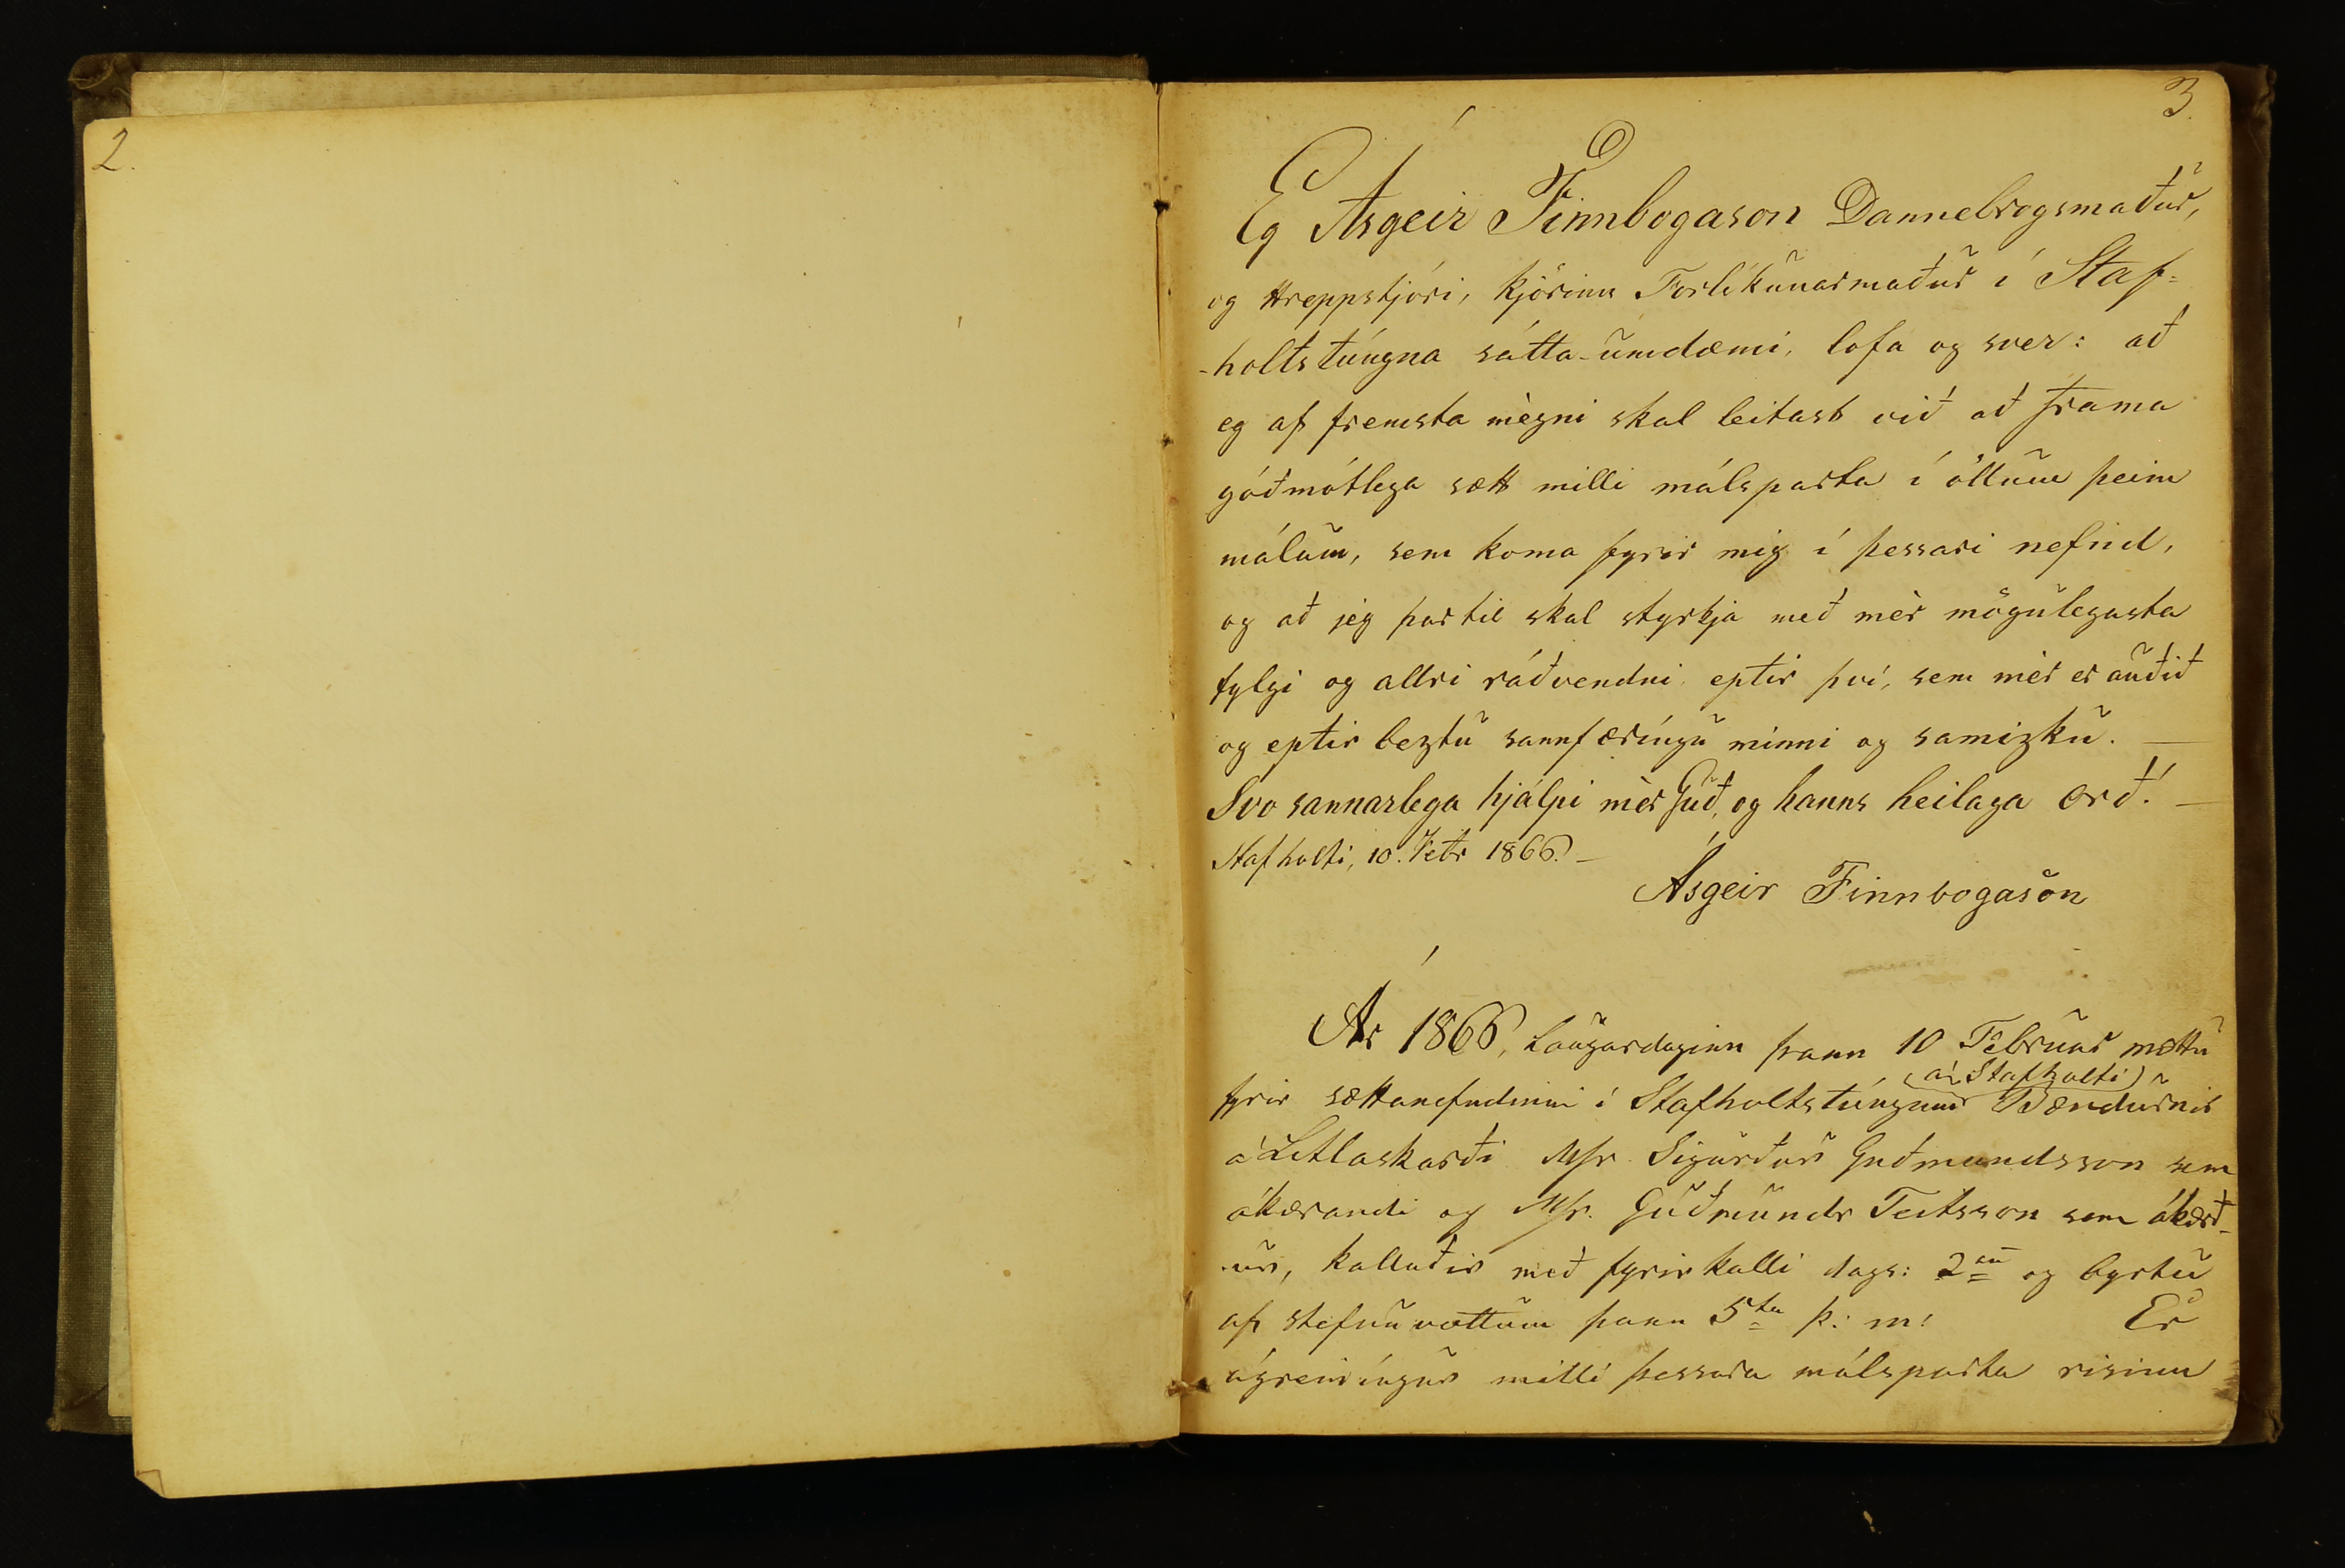 2.
3.
Eg Ásgeir Finnbogason Dannebrogsmaður,
og Hreppstjóri, kjörinn Forlíkunarmaður í Staf=
-holtstúngna sátta-umdæmi, lofa og sver: að
eg af fremsta mègni skal leitast við að frama
góðmótlega sætt milli málsparta í öllum þeim
málum, sem koma fyrir mig í þessari nefnd,
og að jeg þartil skal styrkja með mèr mögulegasta
fylgi og allri ráðvendni, eptir því, sem mèr er auðið
og eptir beztu sannfæríngu minni og samizku. —
Svo sannarlega hjálpi mèr Guð, og hanns heilaga orð! —
Stafholti, 10. Febr 1866. —
Ásgeir Finnbogason
Ár 1866, Laugardaginn þann 10 Februar mættu
(á Stafholti)
fyrir sættanefndinni í Stafholtstúngum Bændurnir
á Litlaskarði Mr. Sigurður Guðmundsson sem
ákærandi og Mr. Guðmundr Teitsson sem ákærð-
-ur, kallaðir með fyrirkalli dags: 2an og byrtu
af stefnuvottum þann 5ta þ: m: Er
ágreiníngur milli þessara málsparta risinn